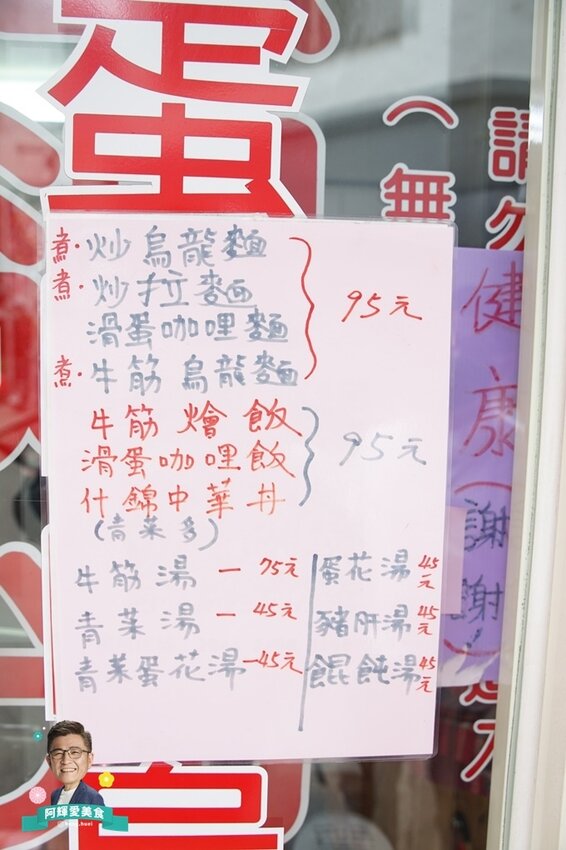 蛋
請勿
(無
煮·炒烏龍麵
煮·炒拉麵
滑蛋咖哩麵
煮·牛筋烏龍麵
95元
牛筋燴飯
滑蛋咖哩飯
什錦中華丼
(青菜多)
95元
牛筋湯 — 75元
青菜湯 — 45元
青菜蛋花湯 —45元
蛋花湯 45元
豬肝湯 45元
餛飩湯 45元
健康(謝謝
阿輝愛美食